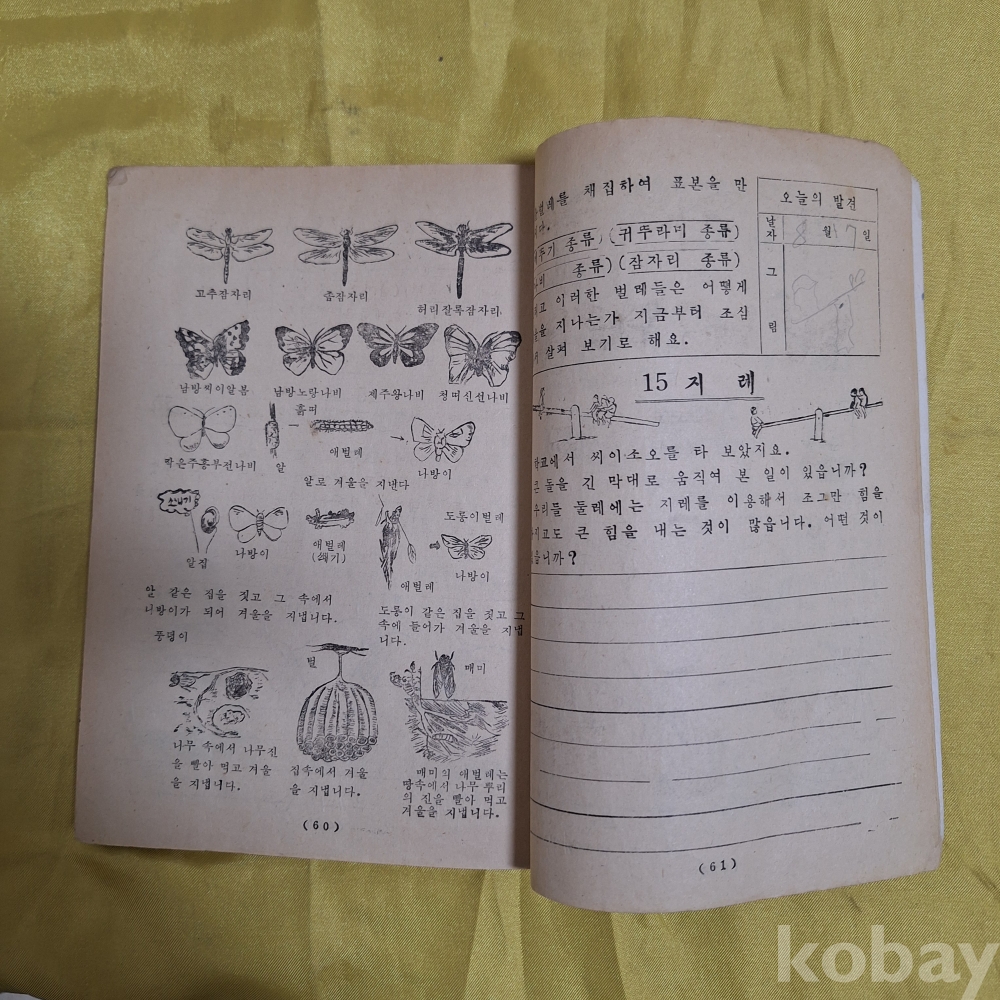 꼬추잠자리
좀잠자리
허리잘록잠자리
남방씨이알봄
남방노랑나비
제주왕나비
청띠신선나비
흙띠
작은주홍부전나비
알
애벌레
나방이
알로 겨울을 지낸다
쏘내기
알집
나방이
애벌레
(쐐기)
애벌레
도롱이벌레
나방이
알 같은 집을 짓고 그 속에서
니방이가 되어 겨울을 지냅니다.
도롱이 같은 집을 짓고 그
속에 들어가 겨울을 지냅
니다.
풍뎅이
벌
매미
나무 속에서 나무진
을 빨아 먹고 겨울
을 지냅니다.
집속에서 겨울
을 지냅니다.
매미의 애벌레는
땅속에서 나무 뿌리
의 진을 빨아 먹고
겨울을 지냅니다.
(60)
채집하여 표본을 만
종류) (귀뚜라미 종류)
종류) (잠자리 종류)
이러한 벌레들은 어떻게
지나는가 지금부터 조심
살펴 보기로 해요.
오늘의 발견
날자 8월 17일
그림
15 지 레
학교에서 씨이소오를 타 보았지요.
큰 돌을 긴 막대로 움직여 본 일이 있읍니까?
우리들 둘레에는 지레를 이용해서 조그만 힘을
큰 힘을 내는 것이 많읍니다. 어떤 것이
있읍니까?
(61)
kobay